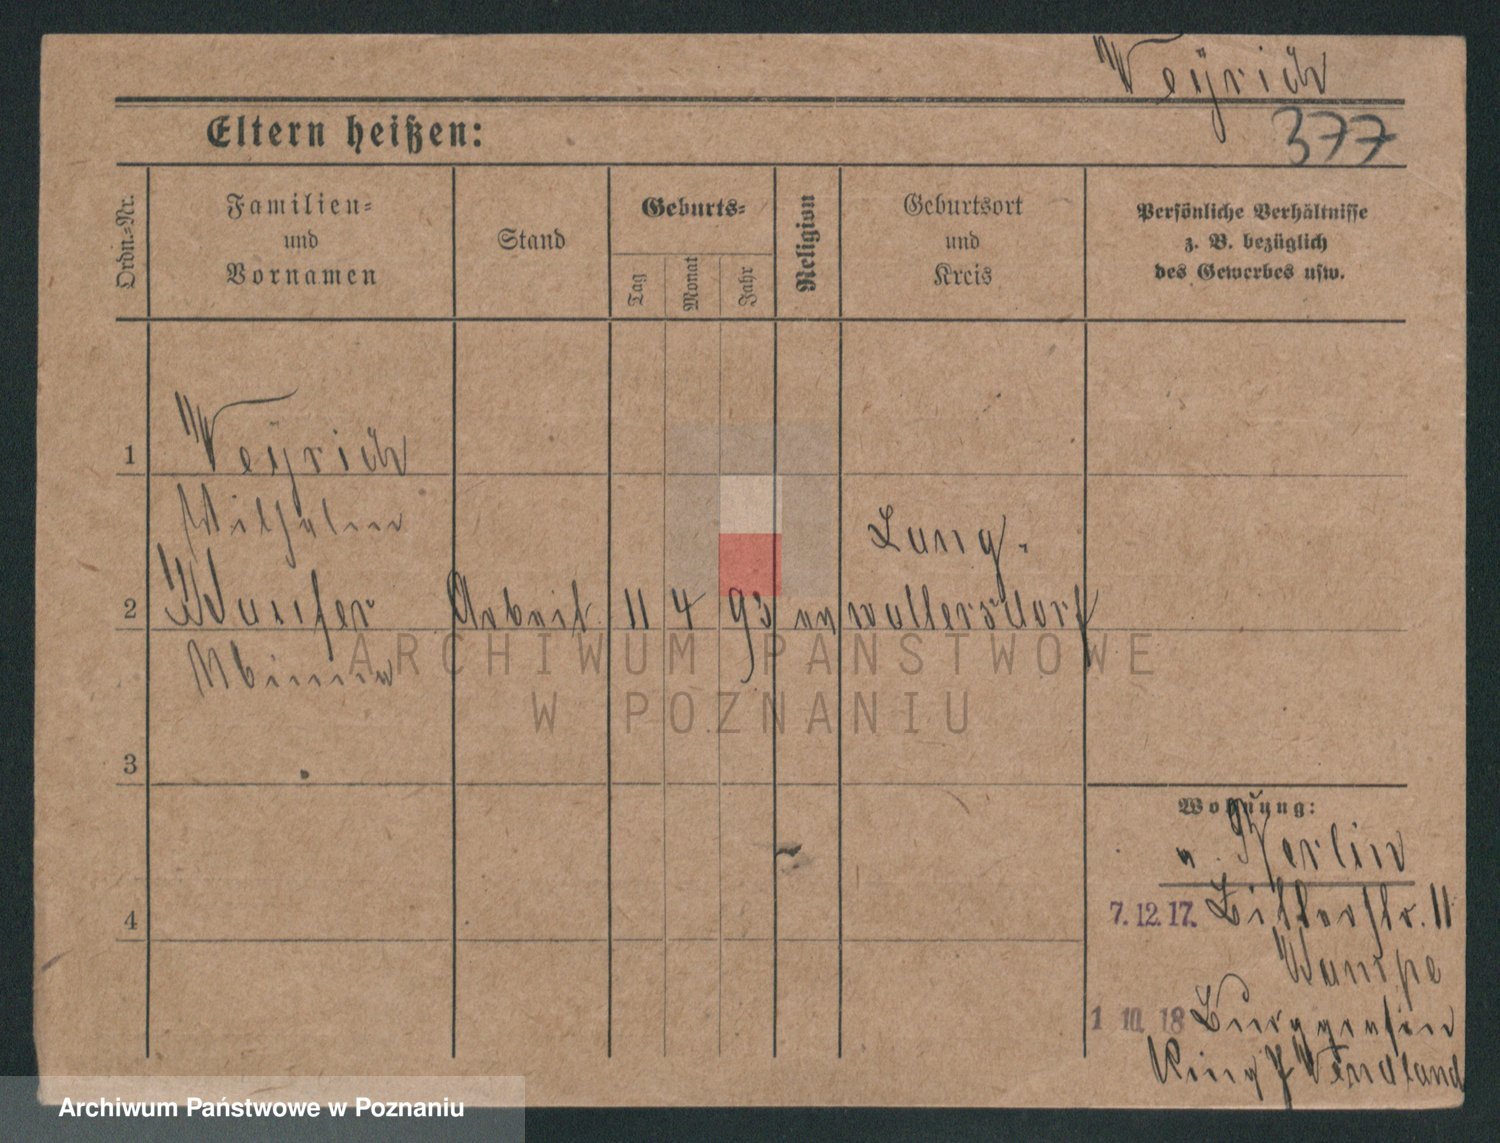 Weÿrich
377
Eltern heißen:
Ordn.-Nr.
Familien-
und
Vornamen
Stand
Geburts-
Tag
Monat
Jahr
Religion
Geburtsort
und
Kreis
Persönliche Verhältnisse
z. B. bezüglich
des Gewerbes usw.
1
Weÿrich
Wilhelm
Lang-
2
Arbeit. 11 4 93 wallersdorf
ARCHIWUM PAŃSTWOWE
W POZNANIU
3
Wohnung:
Berlin
4
7.12.17. 11
1 10. 18 Burggrafen
Ring 7 Wendland
Archiwum Państwowe w Poznaniu